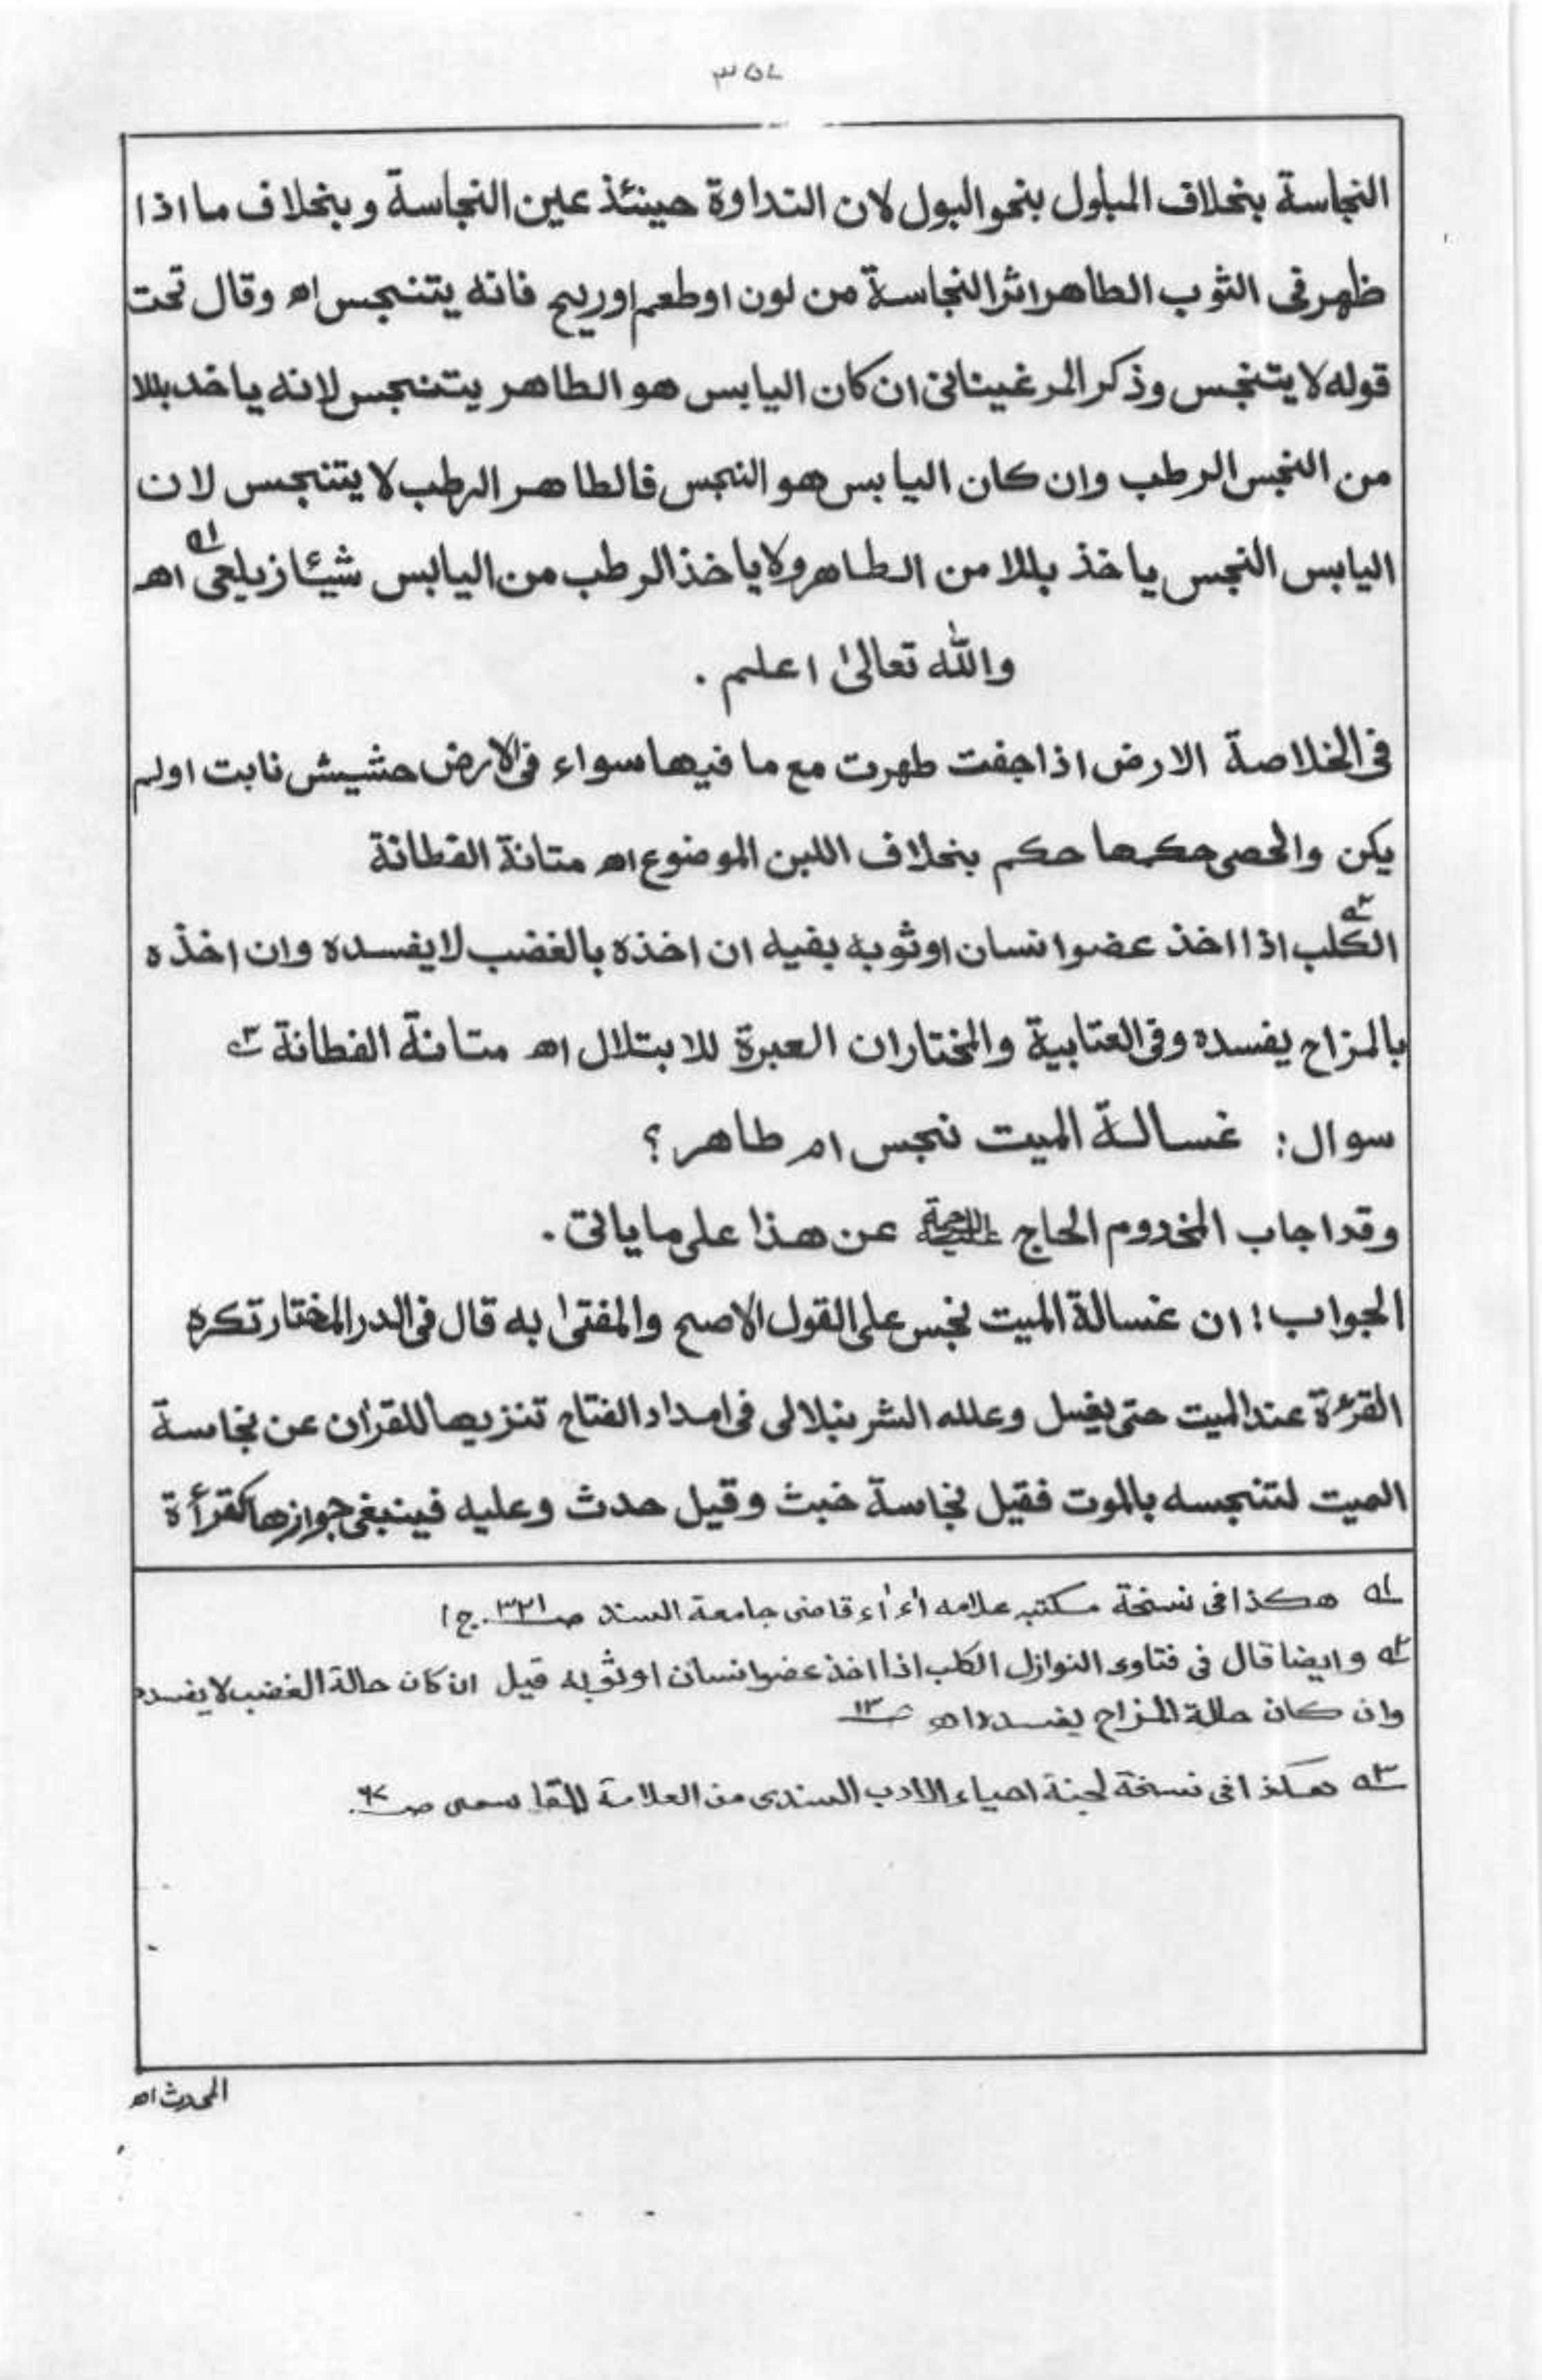 ٣٥٧
النجاسة بخلاف المبلول بنحو البول لان النداوة حينئذ عين النجاسة وبخلاف ما اذا
ظهر فى الثوب الطاهر اثر النجاسة من لون او طعم او ريح فانه يتنجس اھ وقال تحت
قوله لا يتنجس وذكر المرغينانى ان كان اليابس هو الطاهر يتنجس لانه ياخذ بللا
من النجس الرطب وان كان اليابس هو النجس فالطاهر الرطب لا يتنجس لان
اليابس النجس ياخذ بللا من الطاهر ولا ياخذ الرطب من اليابس شيئا زيلعى ا؎ اھ
والله تعالىٰ اعلم .
فى الخلاصة الارض اذا جفت طهرت مع ما فيها سواء فى الارض حشيش نابت او لم
يكن والحصى حكمها حكم بخلاف اللبن الموضوع اھ متانة الفطانة
الكلب ٢؎ اذا اخذ عضو انسان او ثوبه بفيه ان اخذه بالغضب لا يفسده وان اخذه
بالمزاح يفسده وفى العتابية والمختار ان العبرة للابتلال اھ متانة الفطانة ٣؎
سوال: غسالة الميت نجس ام طاهر ؟
وقد اجاب المخدوم الحاج عليه الرحمة عن هذا على ما ياتى .
الجواب : ان غسالة الميت نجس على القول الاصح والمفتىٰ به قال فى الدر المختار تكره
القرءة عند الميت حتى يغسل وعلله الشرنبلالى فى امداد الفتاح تنزيها للقرٰان عن نجاسة
الميت لتنجسه بالموت فقيل نجاسة خبث وقيل حدث وعليه فينبغى جوازها كقرأة
ا؎ هكذا فى نسخة مكتبه علامه اٰء اٰء قاضى جامعة السند صـ٣٣١ . ج ١
٢؎ وايضا قال فى فتاوى النوازل الكلب اذا اخذ عضو انسان او ثوبه قيل ان كان حالة الغضب لا يفسده
وان كان حالة المزاح يفسده اھ صـ١٣
٣؎ هكذا فى نسخة لجنة احياء الادب السندى من العلامة القاسمى صـ
المحدث اھ